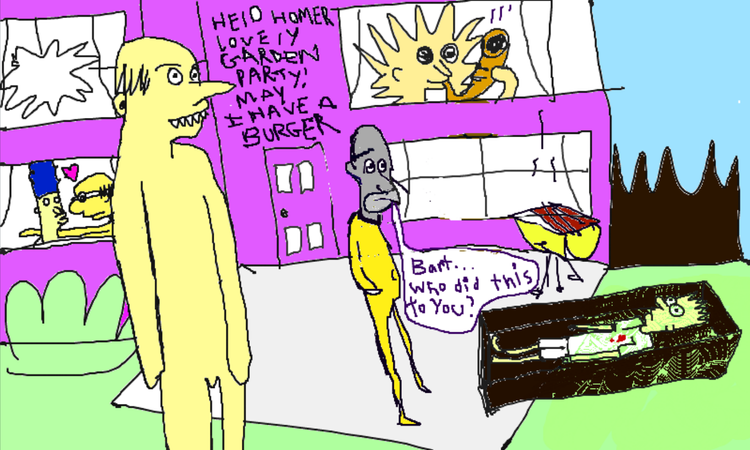 HElO HOMER
LOVElY
GARDEN
PARTY!
MAY
I HAVE A
BURGER
Bart...
who did this
to you?